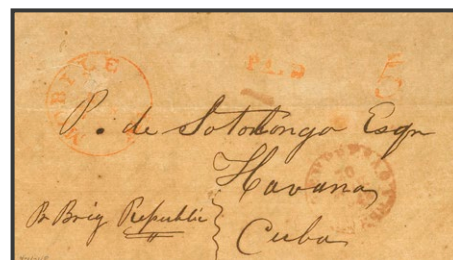 MOBILE
PAID
5
P. de Sotolongo Esqr
Havana
Pr Brig Republic
Cuba